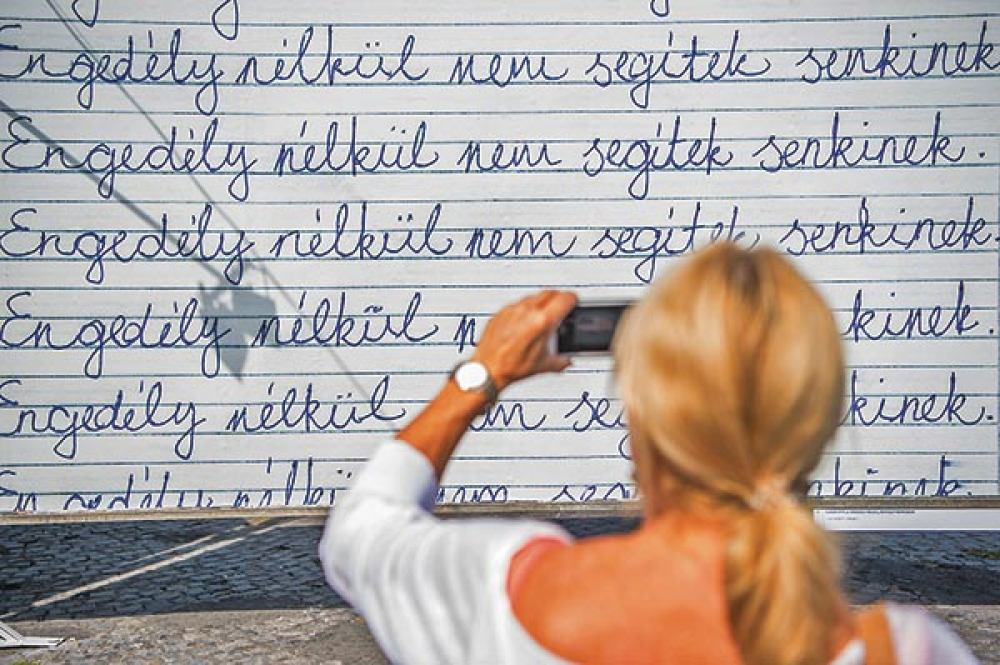 Engedély nélkül nem segítek senkinek
Engedély nélkül nem segítek senkinek.
Engedély nélkül nem segítek senkinek.
Engedély nélkül kinek.
Engedély nélkül kinek.
Engedély nélkül nem